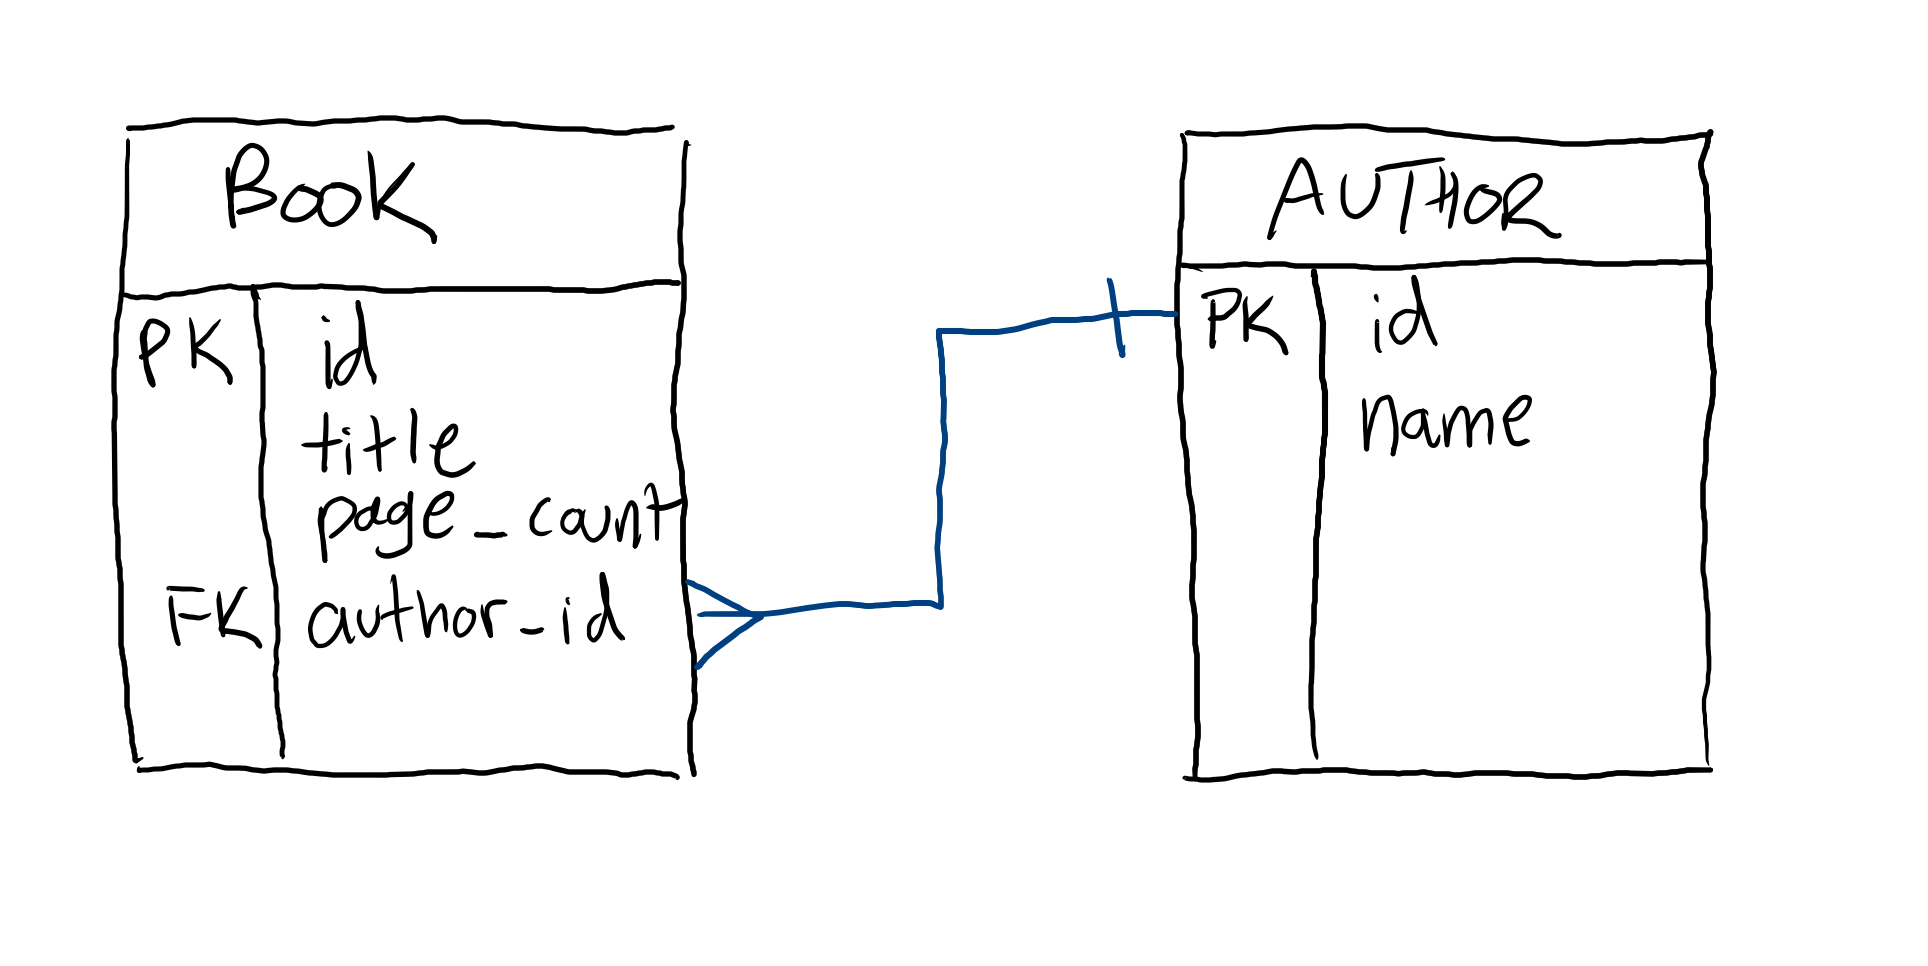 BOOK
PK id
title
page_count
FK author_id
AUTHOR
PK id
name